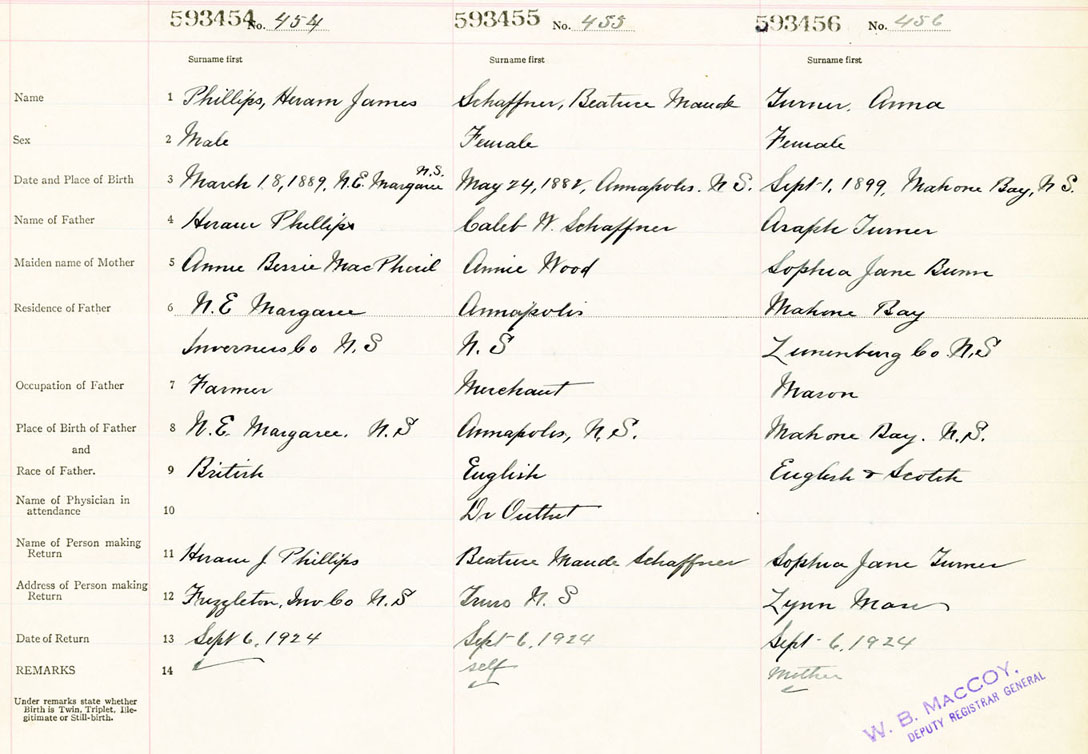 593454 No. 454 593455 No. 455 593456 No. 456
Surname first Surname first Surname first
Name 1 Phillips, Hiram James Schaffner, Beatrice Maude Turner, Anna
Sex 2 Male Female Female
Date and Place of Birth 3 March 18, 1889, N.E. Margaree N.S. May 24, Annapolis. N S. Sept 1, 1899, Mahone Bay, N S.
Name of Father 4 Hiram Phillips Caleb W. Schaffner Asaph Turner
Maiden name of Mother 5 Annie Bessie MacPhail Annie Wood Sophia Jane
Residence of Father 6 N.E Margaree Annapolis Mahone Bay
Inverness Co N.S N.S Lunenburg Co. N.S
Occupation of Father 7 Farmer Merchant Mason
Place of Birth of Father 8 N.E. Margaree. N.S Annapolis, N.S. Mahone Bay. N.S.
and
Race of Father. 9 British English English & Scotch
Name of Physician in
attendance 10 Dr
Name of Person making
Return 11 Hiram J Phillips Beatrice Maude Schaffner Sophia Jane Turner
Address of Person making
Return 12 Frizzleton, Inv Co N.S Truro N.S Lynn Mass
Date of Return 13 Sept 6, 1924 Sept 6, 1924 Sept 6, 1924
REMARKS 14 self mother
Under remarks state whether
Birth is Twin, Triplet, Ille-
gitimate or Still-birth.
W. B. MacCOY.
DEPUTY REGISTRAR GENERAL